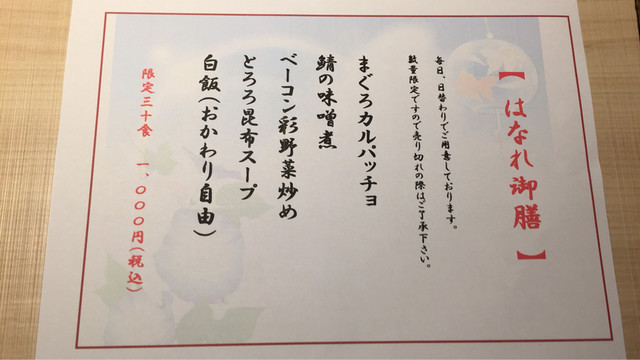 【はなれ御膳】
毎日、日替わりでご用意しております。
数量限定ですので売り切れの際はご了承下さい。
まぐろカルパッチョ
鯖の味噌煮
ベーコン彩野菜炒め
とろろ昆布スープ
白飯(おかわり自由)
限定三十食 一、〇〇〇円(税込)